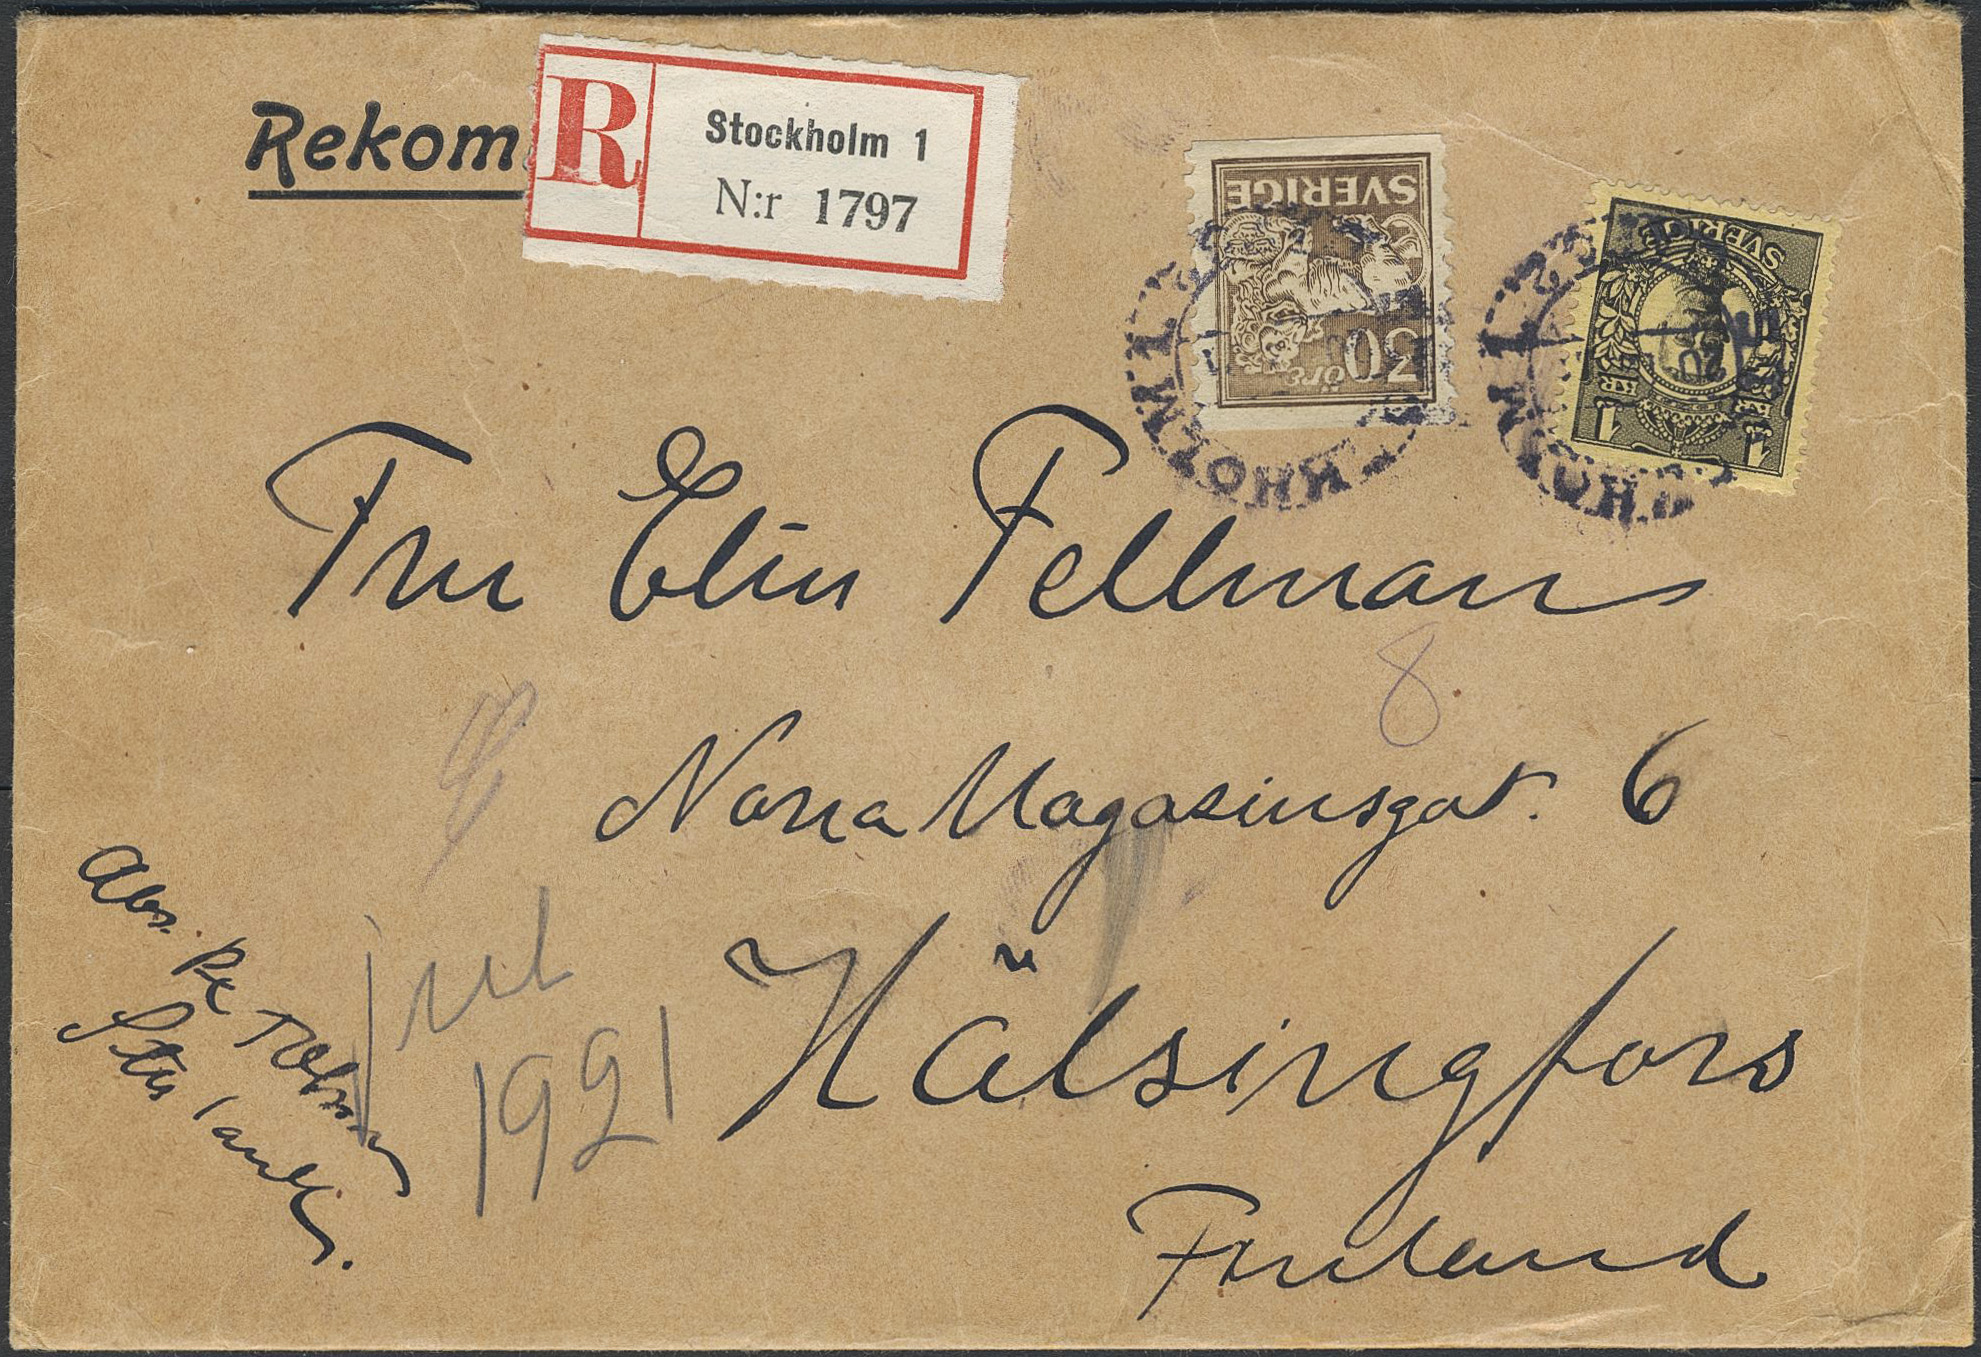 Rekom.
R
Stockholm 1
N:r 1797
SVERIGE
30 öre
SVERIGE
1 KR 1
Fru Elin Fellman
8
Norra Magasinsgat. 6
Hälsingfors
Finland
Jul
1921
Abs.